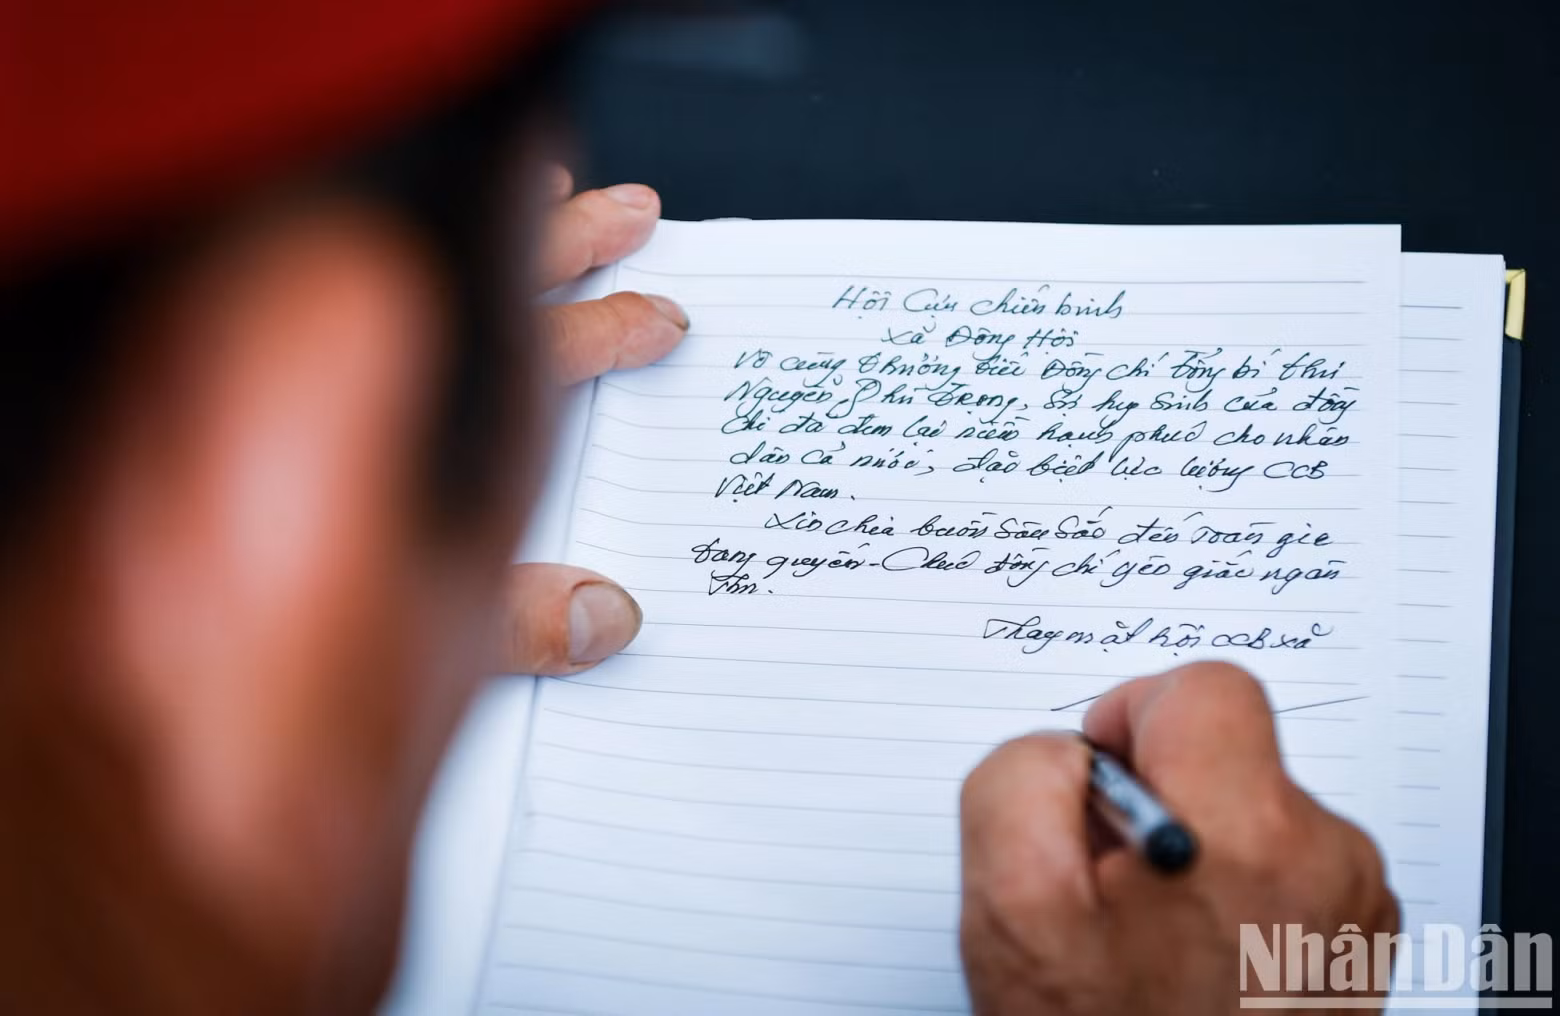 Hội Cựu chiến binh
Xã Đông Hội
Vô cùng thương tiếc Đồng chí Tổng bí thư
Nguyễn Phú Trọng, Sự hy sinh của đồng
chí đã đem lại niềm hạnh phúc cho nhân
dân cả nước, đặc biệt lực lượng CCB
Việt Nam.
Xin chia buồn sâu sắc đến toàn gia
tang quyến - Chúc đồng chí yên giấc ngàn
thu.
Thay mặt hội CCB xã
NhânDân